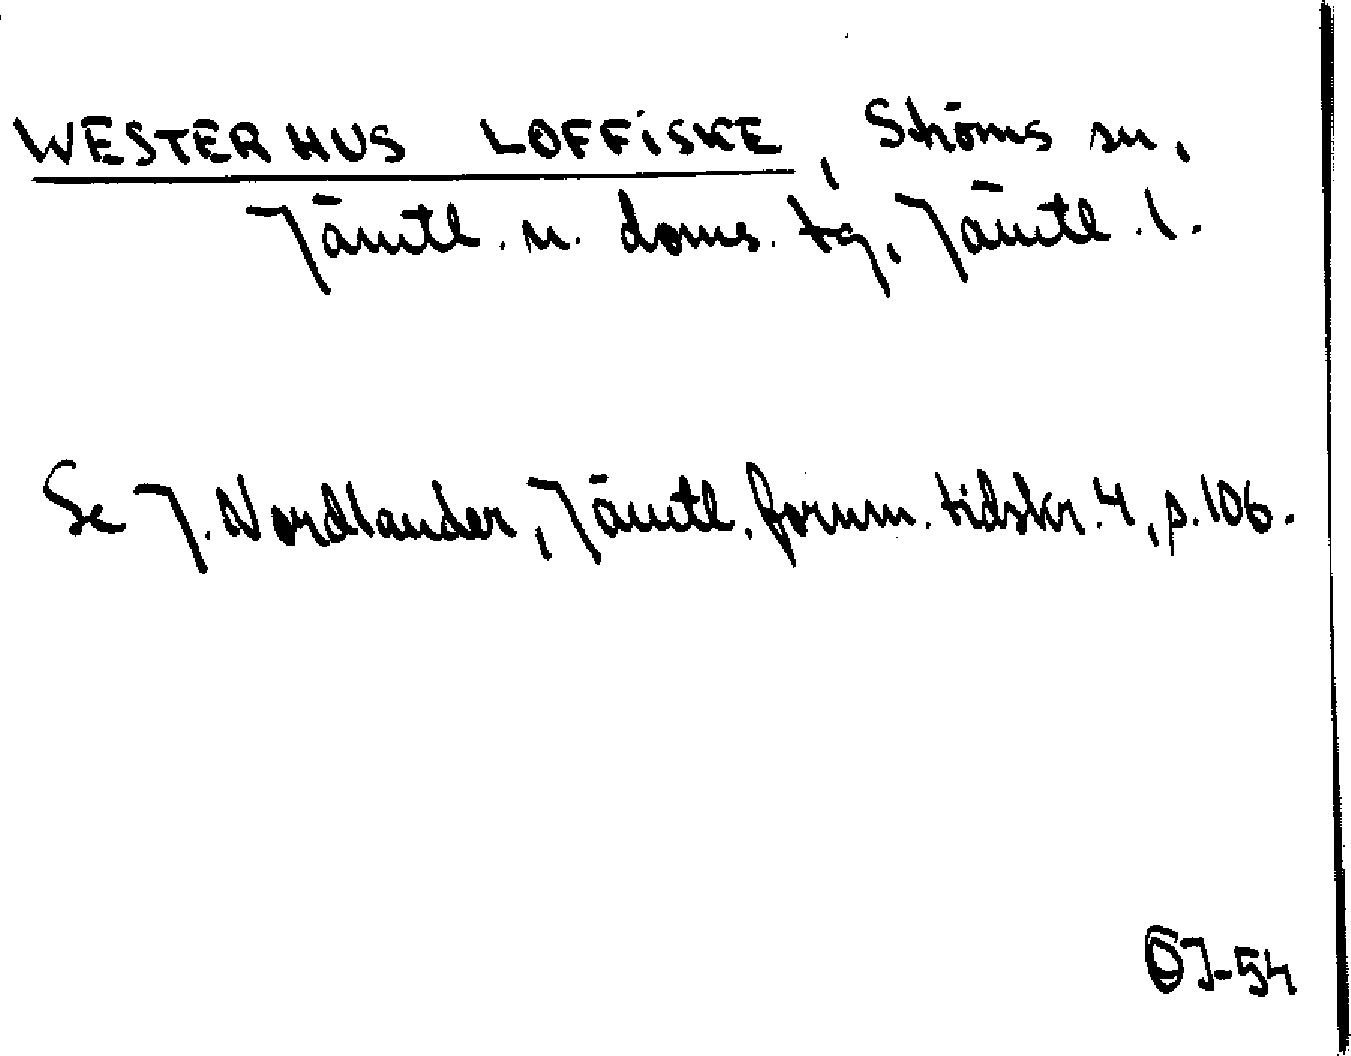 WESTERHUS LOFFiSKE, Ströms sn,
Jämtl. n. doms. tg, Jämtl. l.
Se J. Nordlander, Jämtl. fornm. tidskr. 4, s. 106.
ÖJ-54